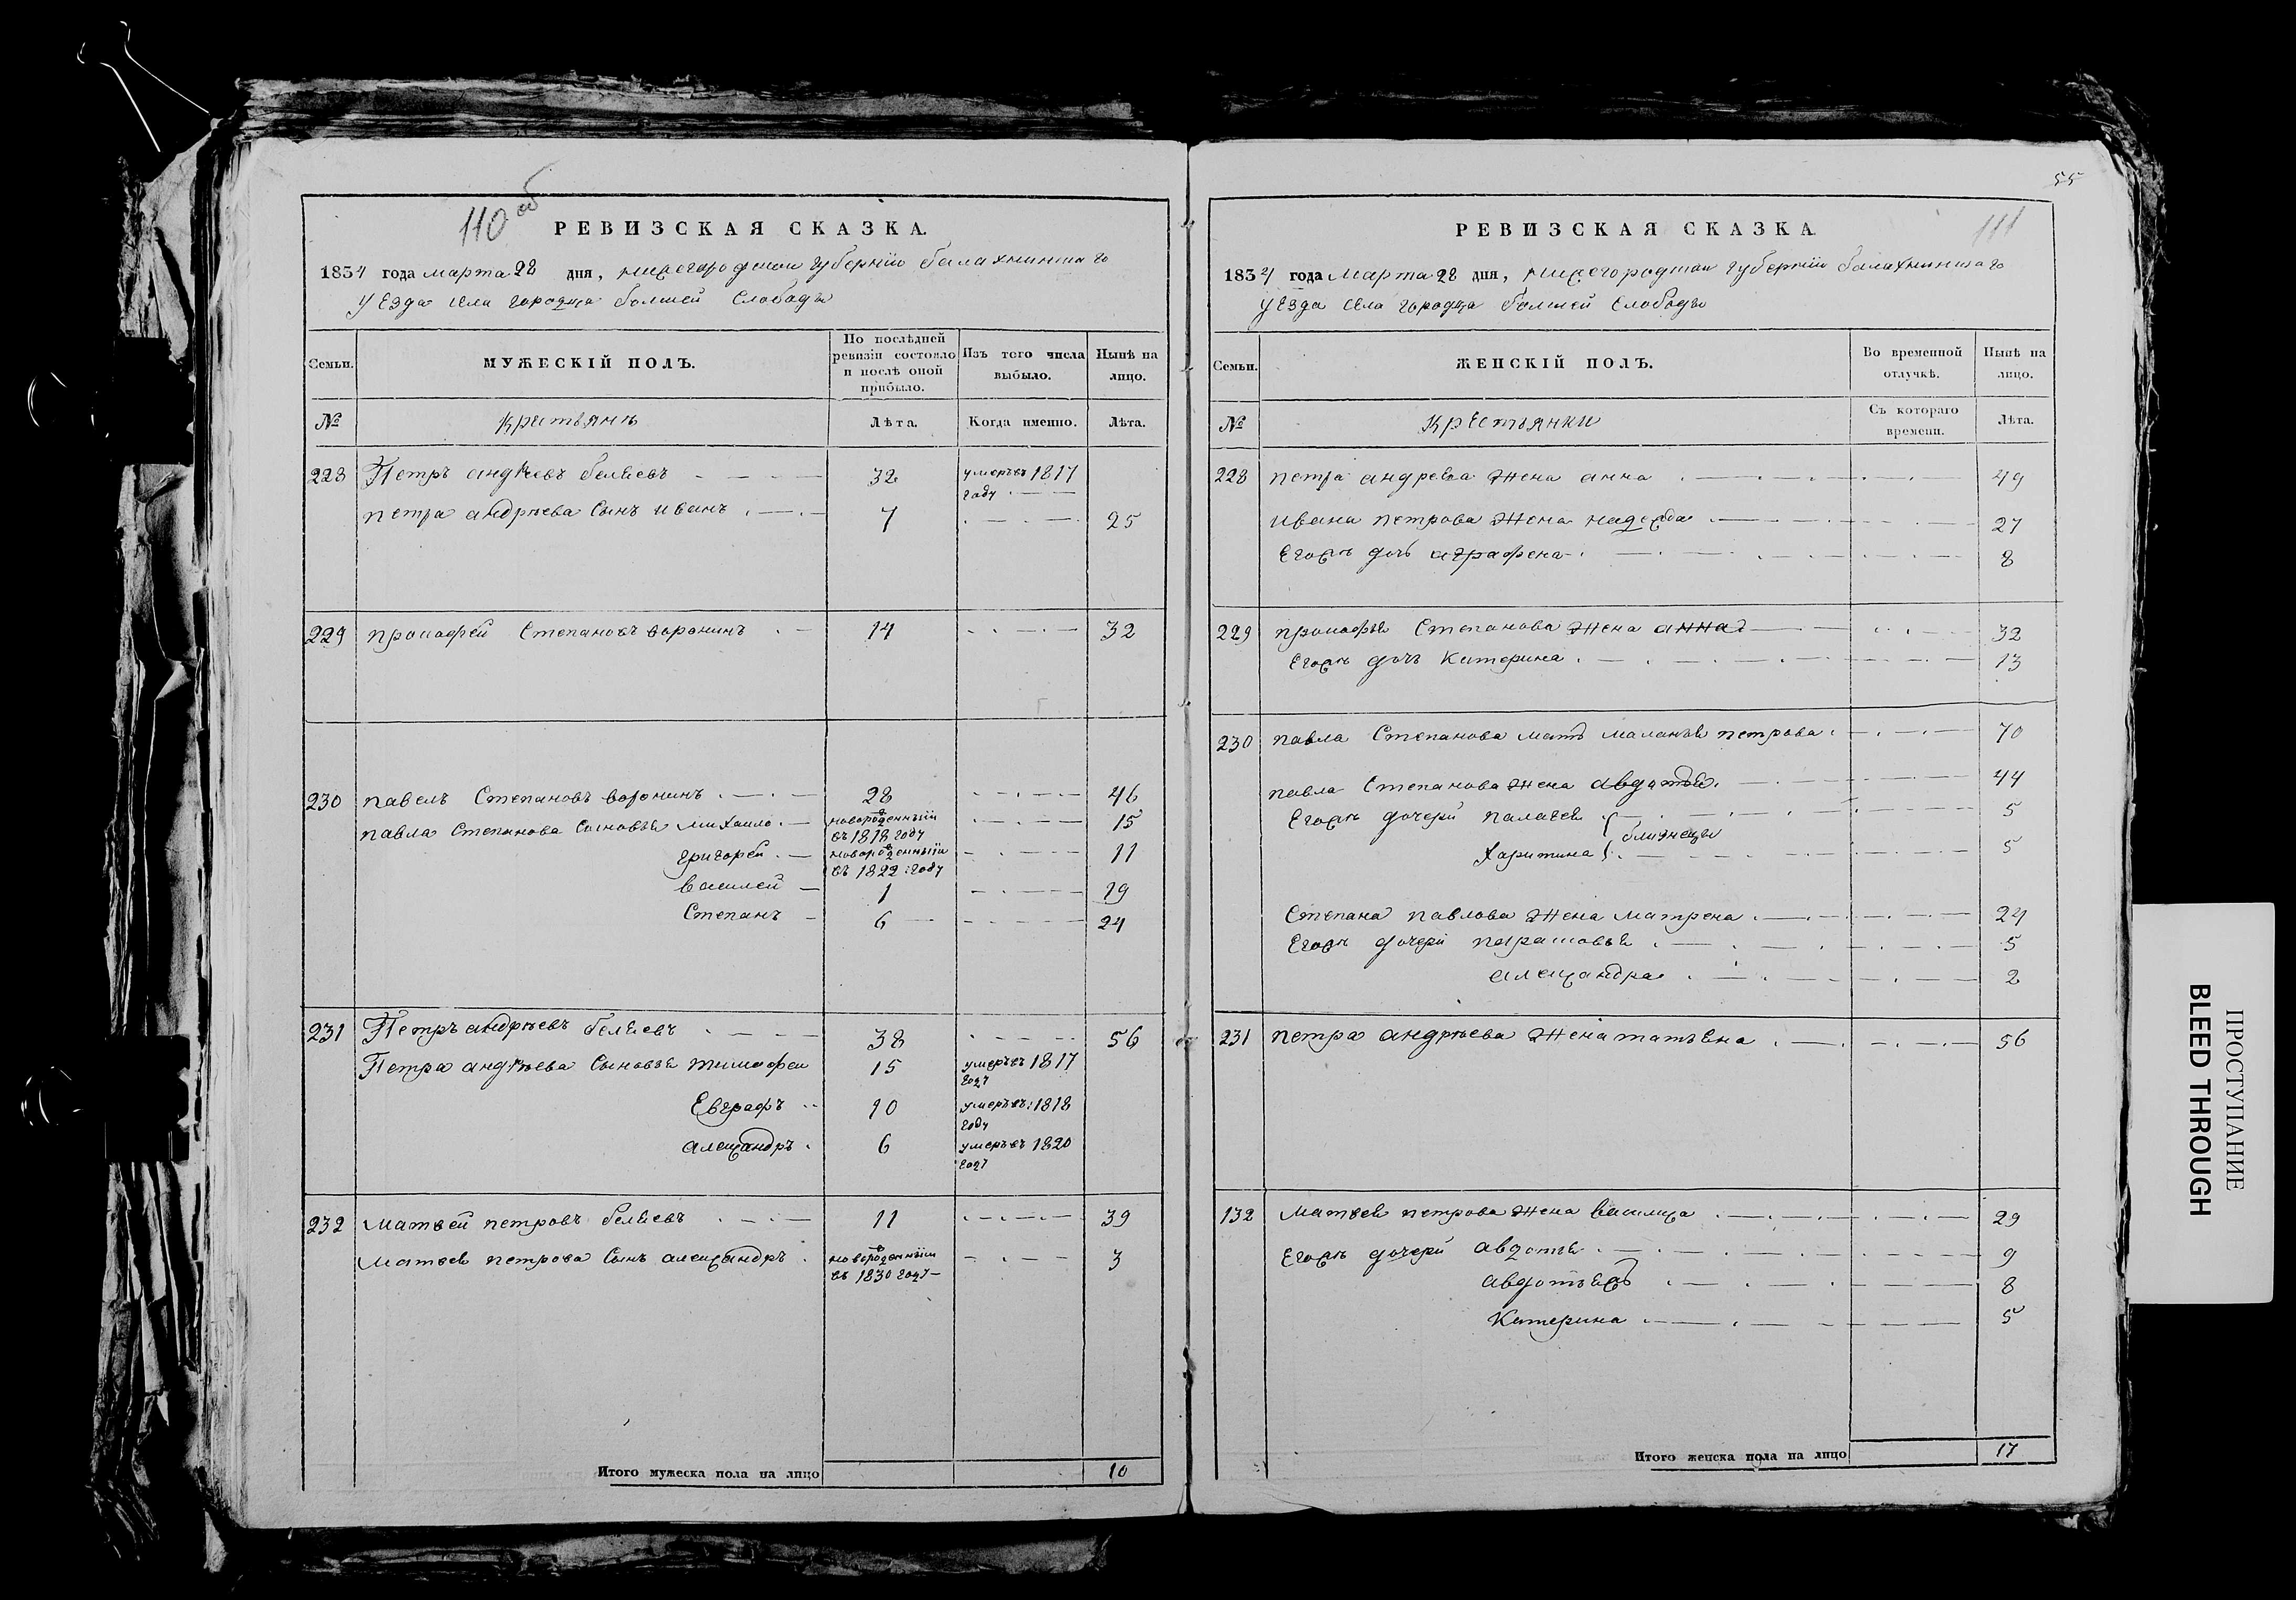 110 об
РЕВИЗСКАЯ СКАЗКА.
1834 года марта 28 дня, нижегородской губернии балахнинскаго
уезда села городца болшей слободы
Семьи.
МУЖЕСКІЙ ПОЛЪ.
По послѣдней ревизіи состояло и послѣ оной прибыло.
Изъ того числа выбыло.
Нынѣ на лицо.
№
Крестьянѣ
Лѣта.
Когда именно.
Лѣта.
228 Петръ андрѣевъ белѣевъ 32 умеръ въ 1817 году
петра андрѣева сынъ иванъ 7 25
229 прокофей Степановъ воронинъ 14 32
230 павелъ Степановъ воронинъ 28 46
павла Степанова сыновья михаило новорожденный въ 1818 году 15
григорей новорожденный въ 1822 году 11
василей 1 19
Степанъ 6 24
231 Петръ андрѣевъ белѣевъ 38 56
Петра андрѣева сыновья тимофеи 15 умеръ въ 1817 году
Евграфъ 10 умеръ въ 1818 году
александръ 6 умеръ въ 1820 году
232 матвей петровъ белѣевъ 11 39
матвея петрова сынъ александръ новорожденный въ 1830 году 3
Итого мужеска пола на лицо 10
55
111
РЕВИЗСКАЯ СКАЗКА
1834 года марта 28 дня, нижегородской губернии балахнинскаго
уезда села городца болшей слободы
Семьи.
ЖЕНСКІЙ ПОЛЪ.
Во временной отлучкѣ.
Нынѣ на лицо.
№
Крестьянки
Съ котораго времени.
Лѣта.
228 петра андрева жена анна 49
ивана петрова жена надежда 27
Егожъ дочь аграфена 8
229 прокофья Степанова жена анна 32
Егожъ дочь катерина 13
230 павла Степанова мать маланья петрова 70
павла Степанова жена авдотья 44
Егожъ дочери палагея 5
близнецы
харитина 5
Степана павлова жена матрена 24
Егожъ дочери парасковья 5
александра 2
231 петра андрѣева жена татьѣна 56
132 матвея петрова жена василиса 29
Егожъ дочери авдотья 9
Катерина 5
Итого женска пола на лицо 17
ПРОСТУПАНИЕ
BLEED THROUGH